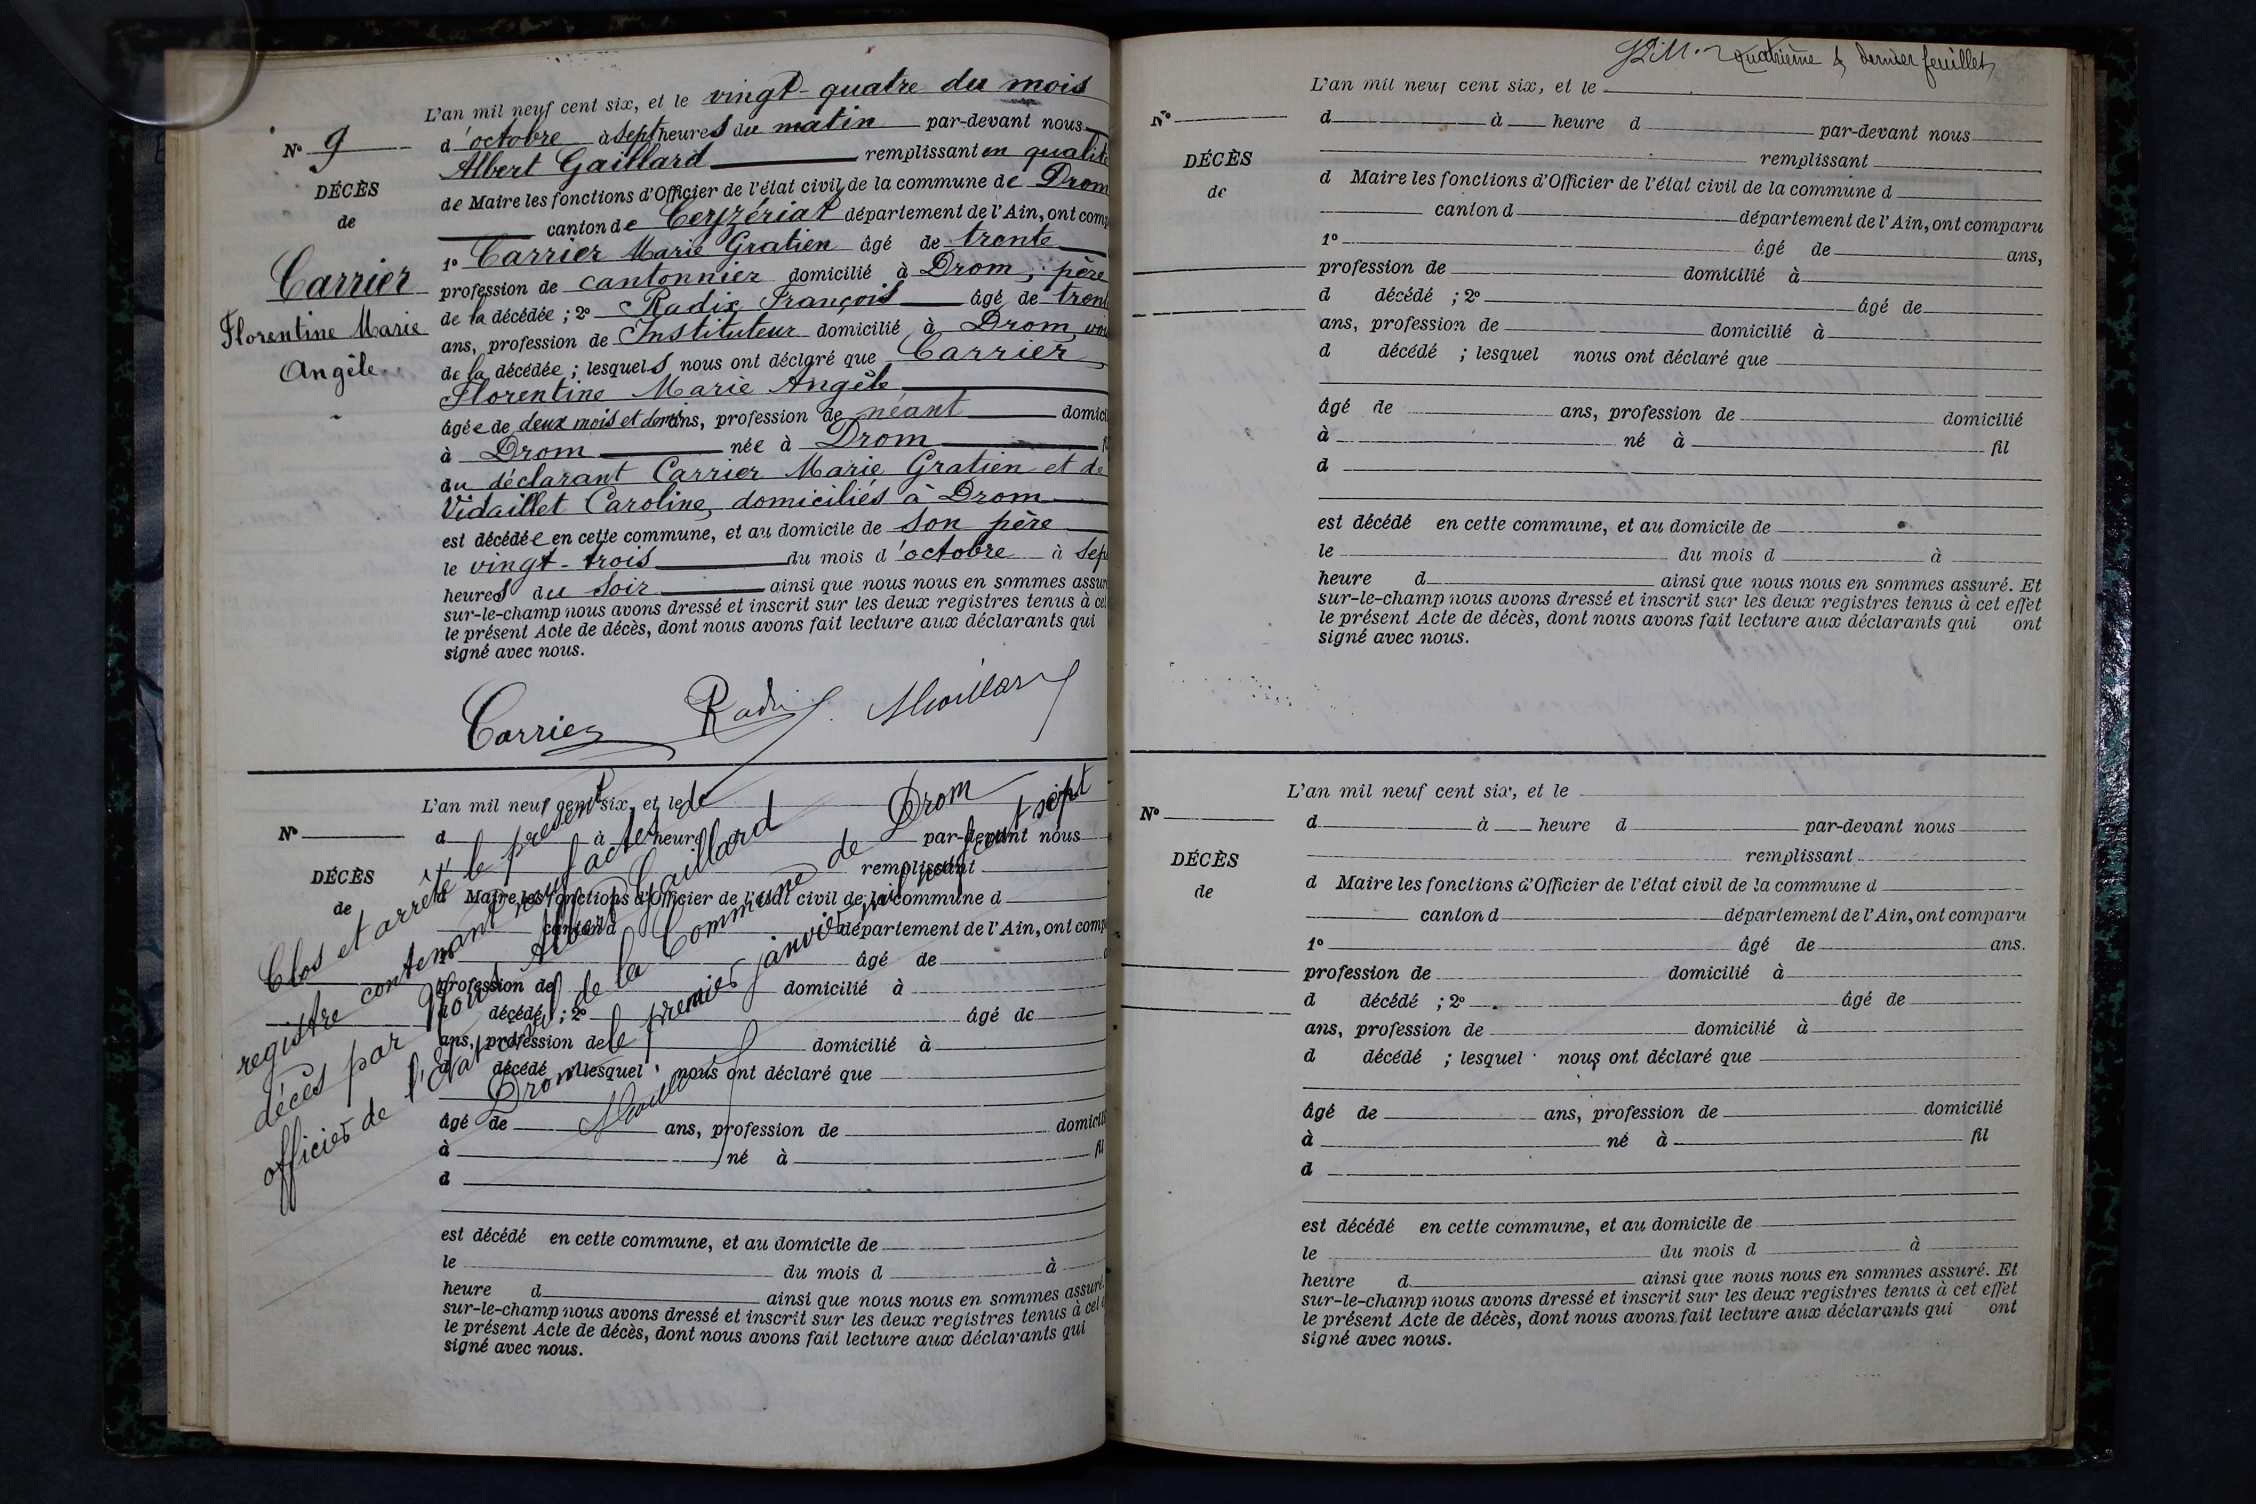 L'an mil neuf cent six, et le vingt-quatre du mois
N° 9
d'octobre à sept heures du matin par-devant nous
Albert Gaillard remplissant en qualité
DÉCÈS
de Maire les fonctions d'Officier de l'état civil de la commune de Drom
de
canton de Ceyzériat département de l'Ain, ont comp
1° Carrier Marie Gratien âgé de trente
Carrier
profession de cantonnier domicilié à Drom, père
de la décédée ; 2° Radix François âgé de trent
Florentine Marie
ans, profession de Instituteur domicilié à Drom voi
Angèle
de la décédée ; lesquels nous ont déclaré que Carrier
Florentine Marie Angèle
âgée de deux mois et demi ans, profession de néant domici
à Drom née à Drom
du déclarant Carrier Marie Gratien et de
Vidaillet Caroline, domiciliés à Drom
est décédée en cette commune, et au domicile de son père
le vingt-trois du mois d'octobre à sep
heures du soir ainsi que nous nous en sommes assuré
sur-le-champ nous avons dressé et inscrit sur les deux registres tenus à cet
le présent Acte de décès, dont nous avons fait lecture aux déclarants qui
signé avec nous.
Carrier Radix AGaillard
L'an mil neuf cent six, et le
N°
d à heure par-devant nous
remplissant
DÉCÈS
d Maire les fonctions d'Officier de l'état civil de la commune d
de
canton d département de l'Ain, ont comp
1° âgé de
profession de domicilié à
d décédé ; 2° âgé de
ans, profession de domicilié à
d décédé ; lesquel nous ont déclaré que
âgé de ans, profession de domicili
à né à fil
d
est décédé en cette commune, et au domicile de
le du mois d à
heure d ainsi que nous nous en sommes assuré.
sur-le-champ nous avons dressé et inscrit sur les deux registres tenus à cet e
le présent Acte de décès, dont nous avons fait lecture aux déclarants qui
signé avec nous.
Clos et arrêté le présent
registre contenant neuf actes de
décès par nous Albert Gaillard
officier de l'Etat civil de la Commune de Drom
Drom le premier janvier mil neuf cent sept
AGaillard
quatrième & dernier feuillet
L'an mil neuf cent six, et le
N°
d à heure d par-devant nous
remplissant
DÉCÈS
d Maire les fonctions d'Officier de l'état civil de la commune d
de
canton d département de l'Ain, ont comparu
1° âgé de ans,
profession de domicilié à
d décédé ; 2° âgé de
ans, profession de domicilié à
d décédé ; lesquel nous ont déclaré que
âgé de ans, profession de domicilié
à né à fil
d
est décédé en cette commune, et au domicile de
le du mois d à
heure d ainsi que nous nous en sommes assuré. Et
sur-le-champ nous avons dressé et inscrit sur les deux registres tenus à cet effet
le présent Acte de décès, dont nous avons fait lecture aux déclarants qui ont
signé avec nous.
L'an mil neuf cent six, et le
N°
d à heure d par-devant nous
remplissant
DÉCÈS
d Maire les fonctions d'Officier de l'état civil de la commune d
de
canton d département de l'Ain, ont comparu
1° âgé de ans.
profession de domicilié à
d décédé ; 2° âgé de
ans, profession de domicilié à
d décédé ; lesquel nous ont déclaré que
âgé de ans, profession de domicilié
à né à fil
d
est décédé en cette commune, et au domicile de
le du mois d à
heure d ainsi que nous nous en sommes assuré. Et
sur-le-champ nous avons dressé et inscrit sur les deux registres tenus à cet effet
le présent Acte de décès, dont nous avons fait lecture aux déclarants qui ont
signé avec nous.